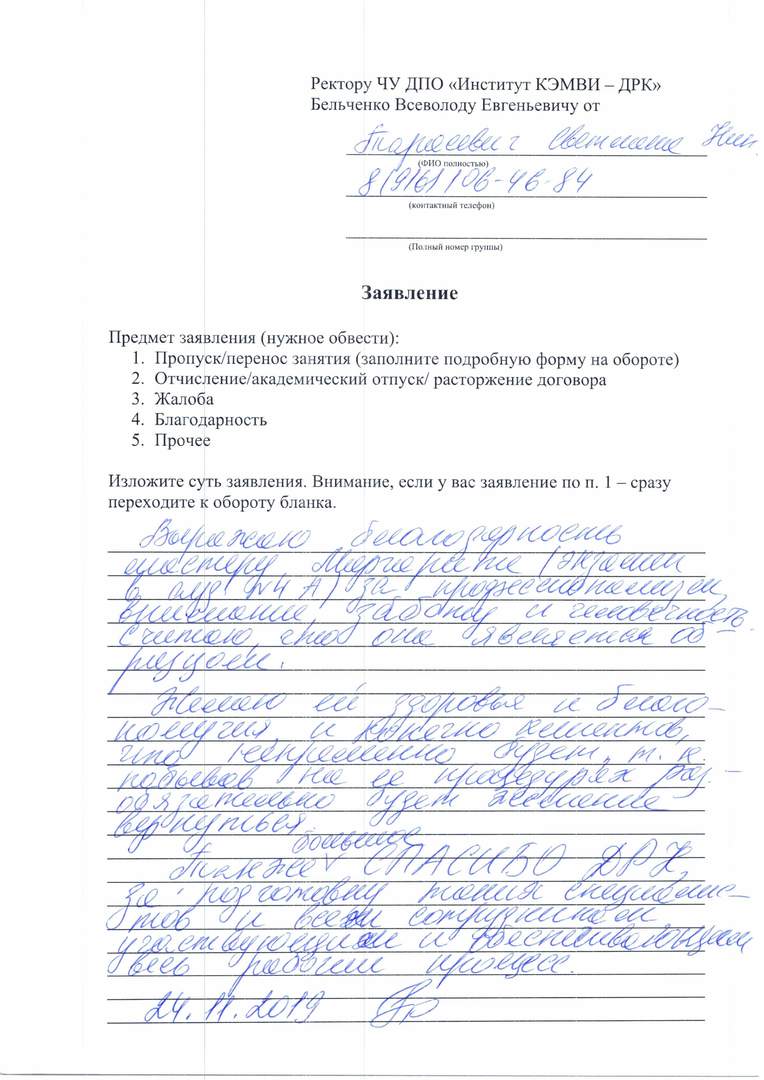 Ректору ЧУ ДПО «Институт КЭМВИ – ДРК»
Бельченко Всеволоду Евгеньевичу от
Тарасевич Светлана Ник.
(ФИО полностью)
8(916)106-46-84
(контактный телефон)
(Полный номер группы)
Заявление
Предмет заявления (нужное обвести):
1. Пропуск/перенос занятия (заполните подробную форму на обороте)
2. Отчисление/академический отпуск/ расторжение договора
3. Жалоба
4. Благодарность
5. Прочее
Изложите суть заявления. Внимание, если у вас заявление по п. 1 – сразу
переходите к обороту бланка.
Выражаю благодарность
мастеру Маргарите (экзамен
в ауд №4 А) за профессионализм,
внимание, заботу и человечность.
Считаю, что она является об
разцом.
Желаю ей здоровья и благо-
получия, и конечно клиентов,
что непременно будет, т. к.
побывав на ее процедурах раз -
обязательно будет желание
вернуться.
большое
Также СПАСИБО ДРК
за подготовку таких специалис-
тов и всем сотрудникам
участвующим и обеспечивающим
весь рабочий процесс.
24.11.2019